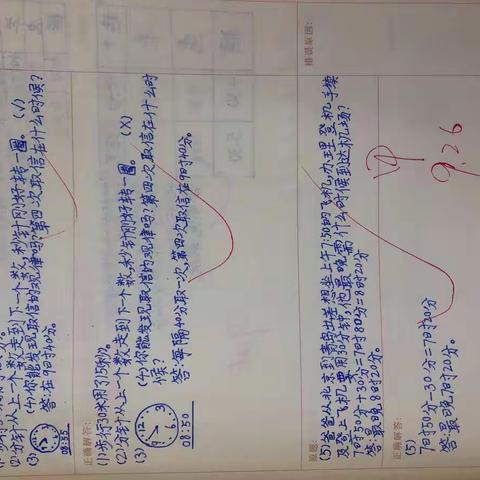 (2)分针从上一个数走到下一个数,秒针刚好转一圈。(√)
(3) (4)你能发现取信的规律吗?第四次取信在什么时候?
答:在9时40分。
08:55
正确解答:
(1)步行30米用了15秒。
(2)分针从上一个数走到下一个数,秒针刚好转一圈。(X)
(3) (4)你能发现取信的规律吗?第四次取信在什么时
候?
答:每隔40分取一次,第四次取信在9时40分。
08:50
原题:
错误原因:
(5)爸爸从北京到青岛出差想坐上午7:50的飞机,办理登机手续
及登上飞机要用30分钟,他最晚需什么时候到达机场?
7时50分+30分=7时80分=8时20分
答:最晚8时20分。
正确解答:
(5)
7时50分-30分=7时20分
答:最晚7时20分。
9.26